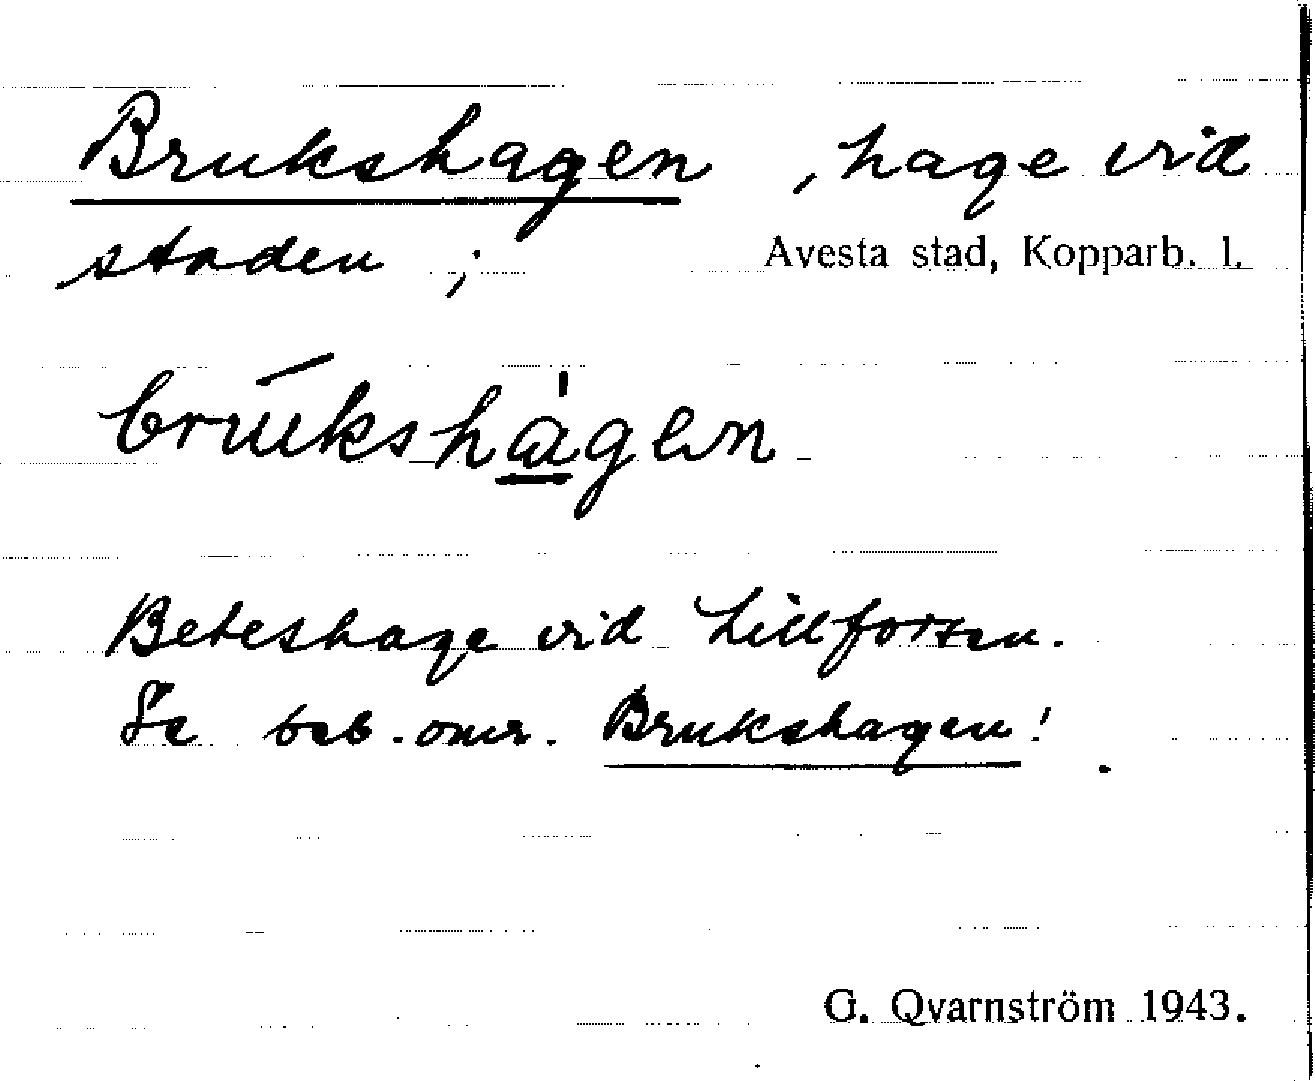 Brukshagen , hage vid
staden ; Avesta stad, Kopparb. l.
brukshagen
Beteshage vid Lillforsen.
Se beb. omr. Brukshagen!
G. Qvarnström 1943.